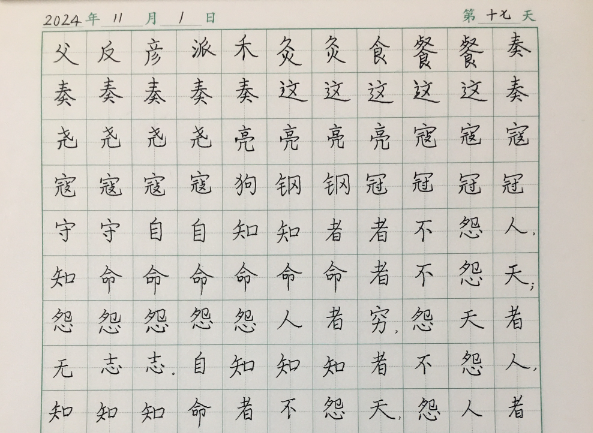 2024年11月1日 第十七天
父反彦派禾灸灸食餐餐奏
奏奏奏奏奏这这这这这奏
尧尧尧尧亮亮亮亮寇寇寇
寇寇寇寇狗钢钢冠冠冠冠
守守自自知知者者不怨人,
知命命命命命命者不怨天;
怨怨怨怨怨人者穷,怨天者
无志志.自知知知者不怨人,
知知知命者不怨天,怨人者